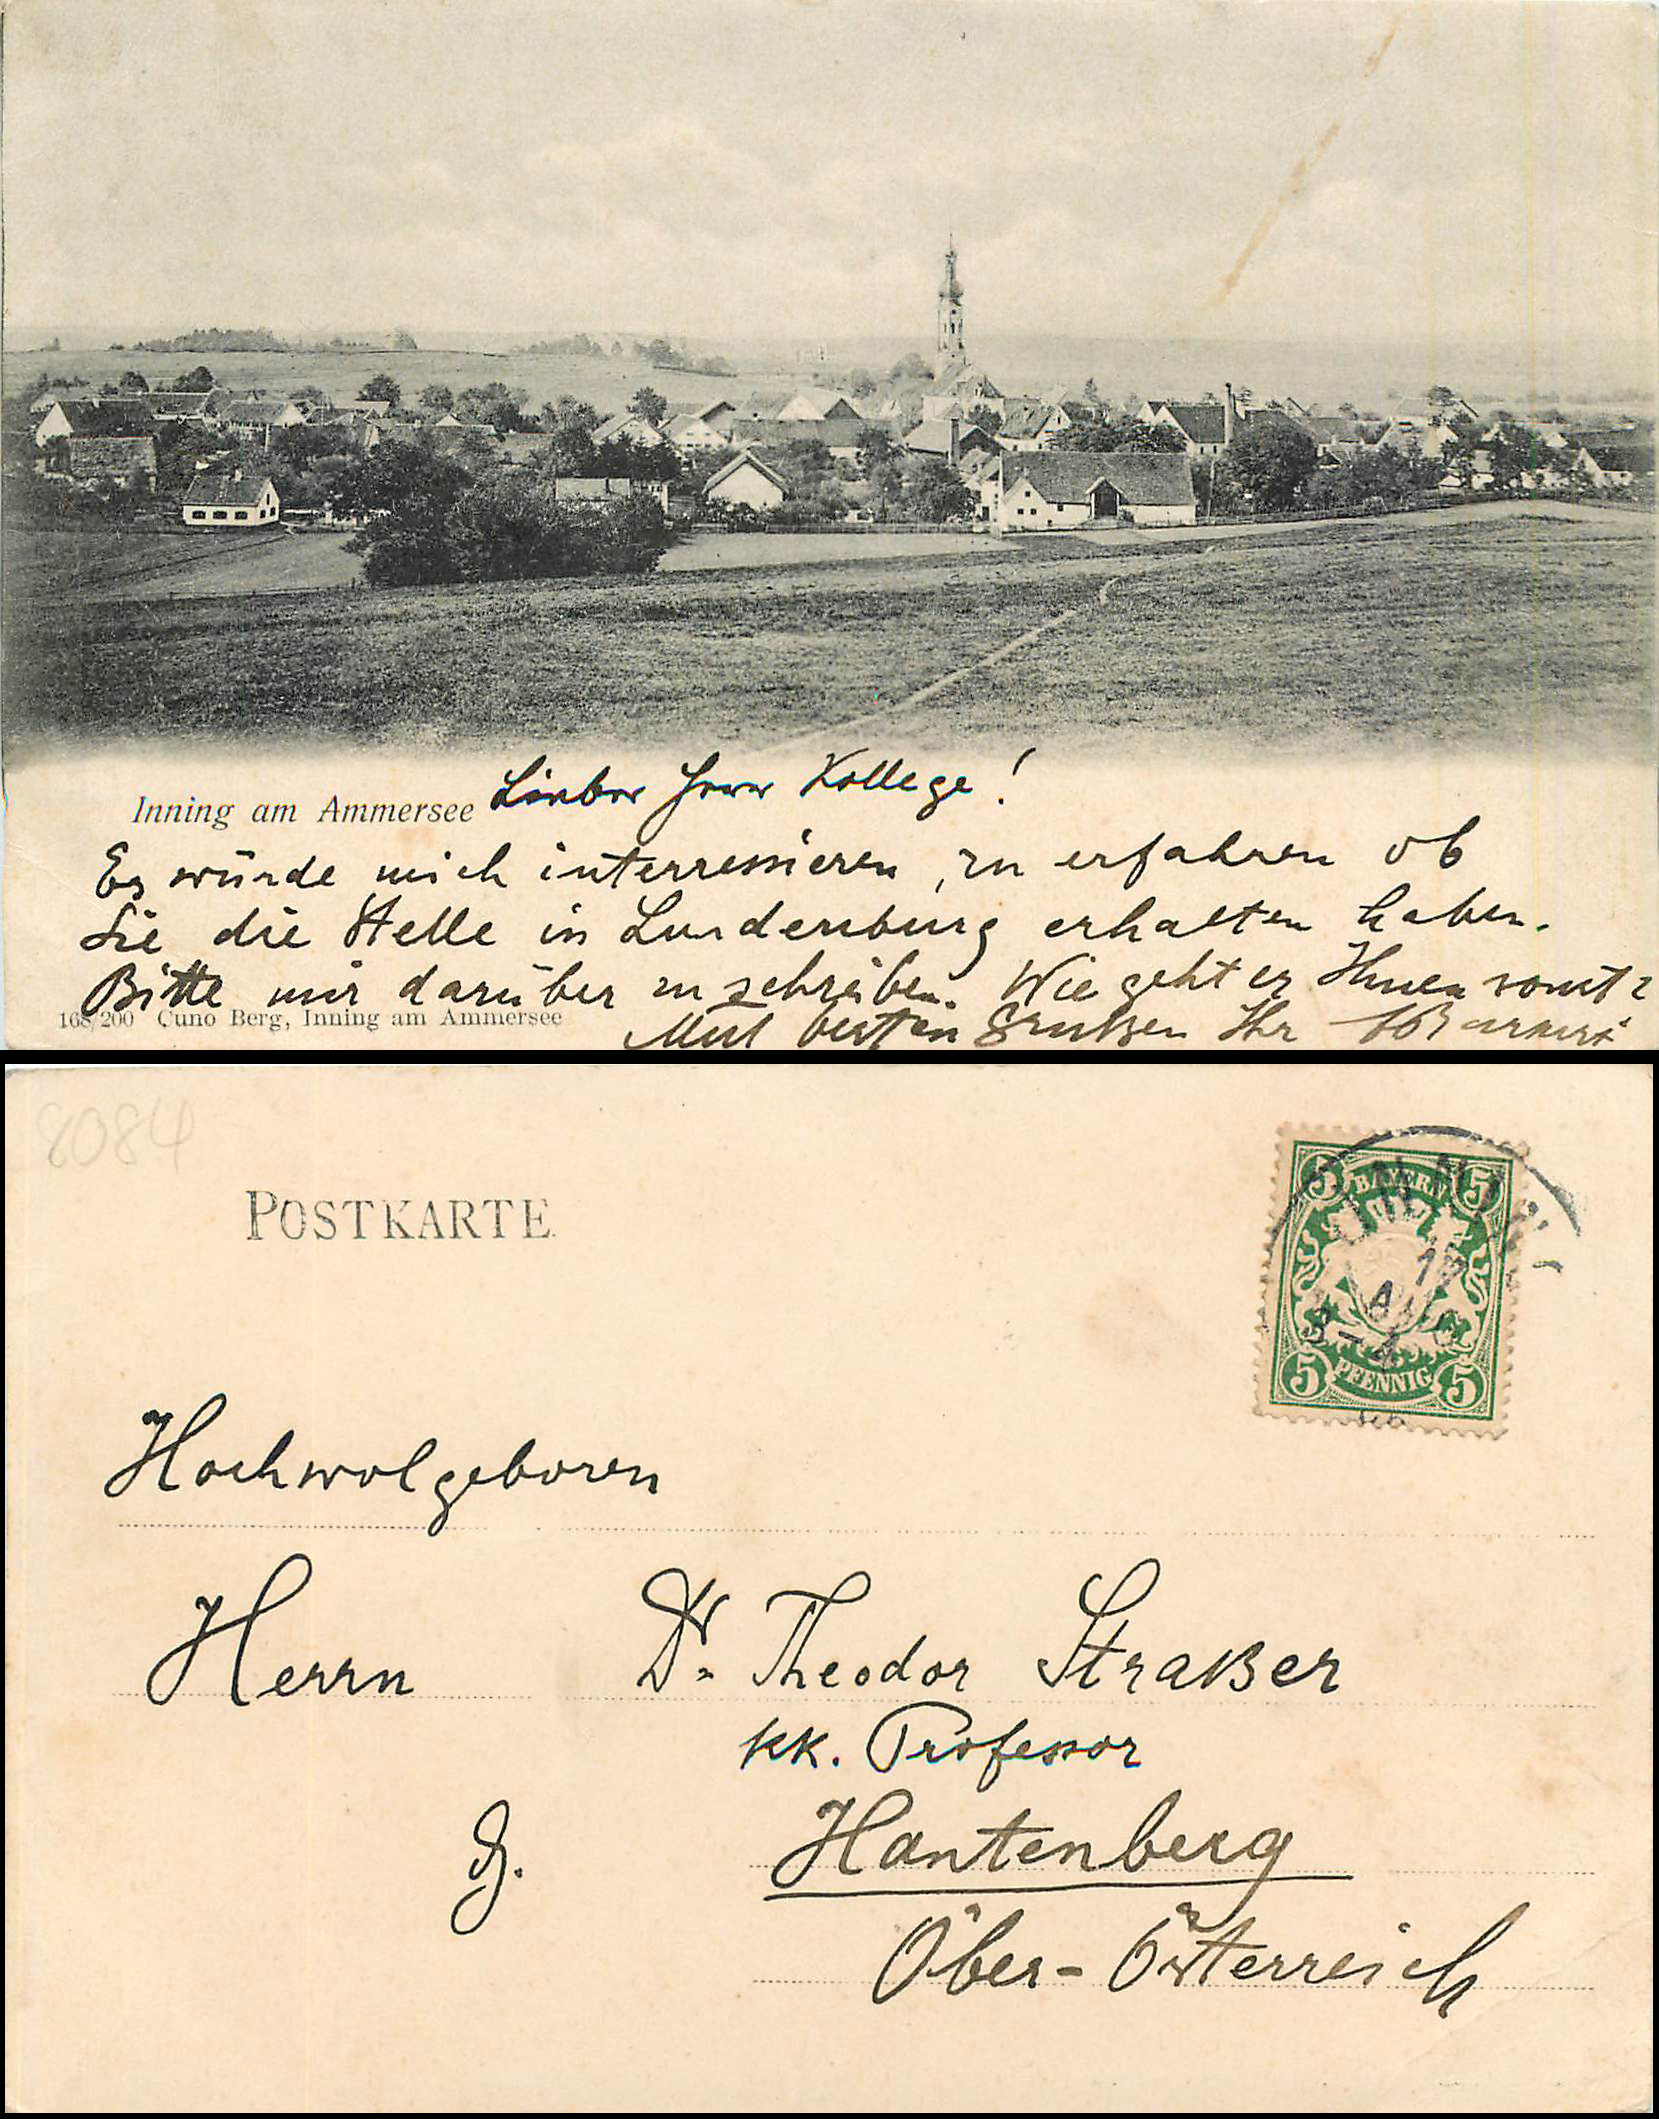 Inning am Ammersee Lieber Herr Kollege!
Es würde mich interressieren, zu erfahren ob
Sie die Stelle in Lundenburg erhalten haben.
Bitte mir darüber zu schreiben. Wie geht es Ihnen sonst?
168/200 Cuno Berg, Inning am Ammersee
Mit besten Grüßen Ihr
8084
POSTKARTE
5 BAYERN 5
INNING
17
AUG
3-4
5 PFENNIG 5
Hochwolgeboren
Herrn Dr. Theodor Straßer
kk. Professor
Hantenberg
Ober-Österreich